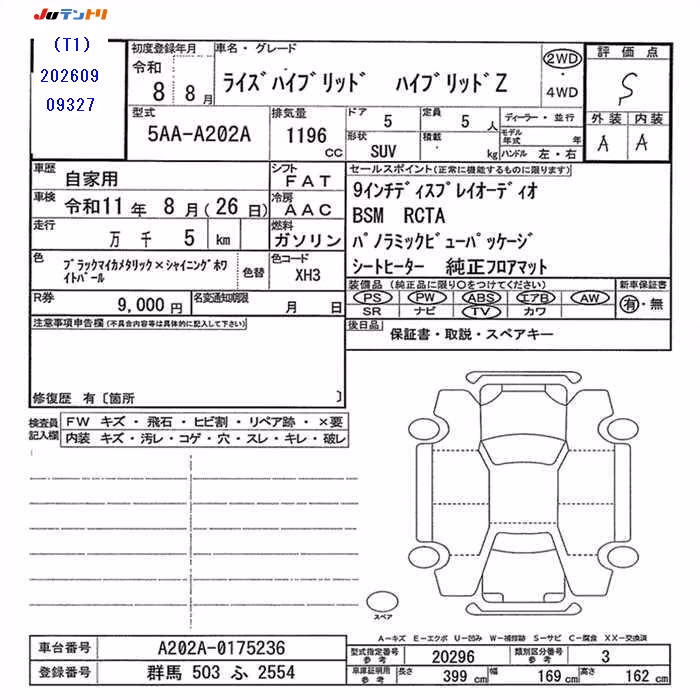 JUテントリ
(T1)
202609
09327
初度登録年月
令和
8 8月
車名・グレード
ライズハイブリッド ハイブリッドZ
2WD
・
4WD
評価点
S
外装 内装
A A
型式
5AA-A202A
排気量
1196
CC
ドア
5
定員
5 人
形状
SUV
積載
kg
ディーラー・並行
モデル年式 年
ハンドル 左・右
車歴
自家用
シフト
FAT
車検
令和11年 8月(26日)
冷房
AAC
走行
万 千 5 km
燃料
ガソリン
色
ブラックマイカメタリック×シャイニングホワイトパール
色替
色コード
XH3
R券
9,000円
名変通知期限
月 日
セールスポイント(正常に機能するものに限ります)
9インチディスプレイオーディオ
BSM RCTA
パノラミックビューパッケージ
シートヒーター 純正フロアマット
装備品 (純正品に限り○をつけてください)
PS PW ABS エアB AW
SR ナビ TV カワ
新車保証書
有・無
後日品
保証書・取説・スペアキー
注意事項申告欄(不具合内容等は具体的に記入して下さい)
修復歴 有〔箇所 〕
検査員記入欄
FW キズ・飛石・ヒビ割・リペア跡・×要
内装 キズ・汚レ・コゲ・穴・スレ・キレ・破レ
スペア
A-キズ E-エクボ U-凹み W-補修跡 S-サビ C-腐食 XX-交換済
車台番号
A202A-0175236
登録番号
群馬 503 ふ 2554
型式指定番号
参考
20296
類別区分番号
参考
3
車庫証明用
参考
長さ
399 cm
幅
169 cm
高さ
162 cm